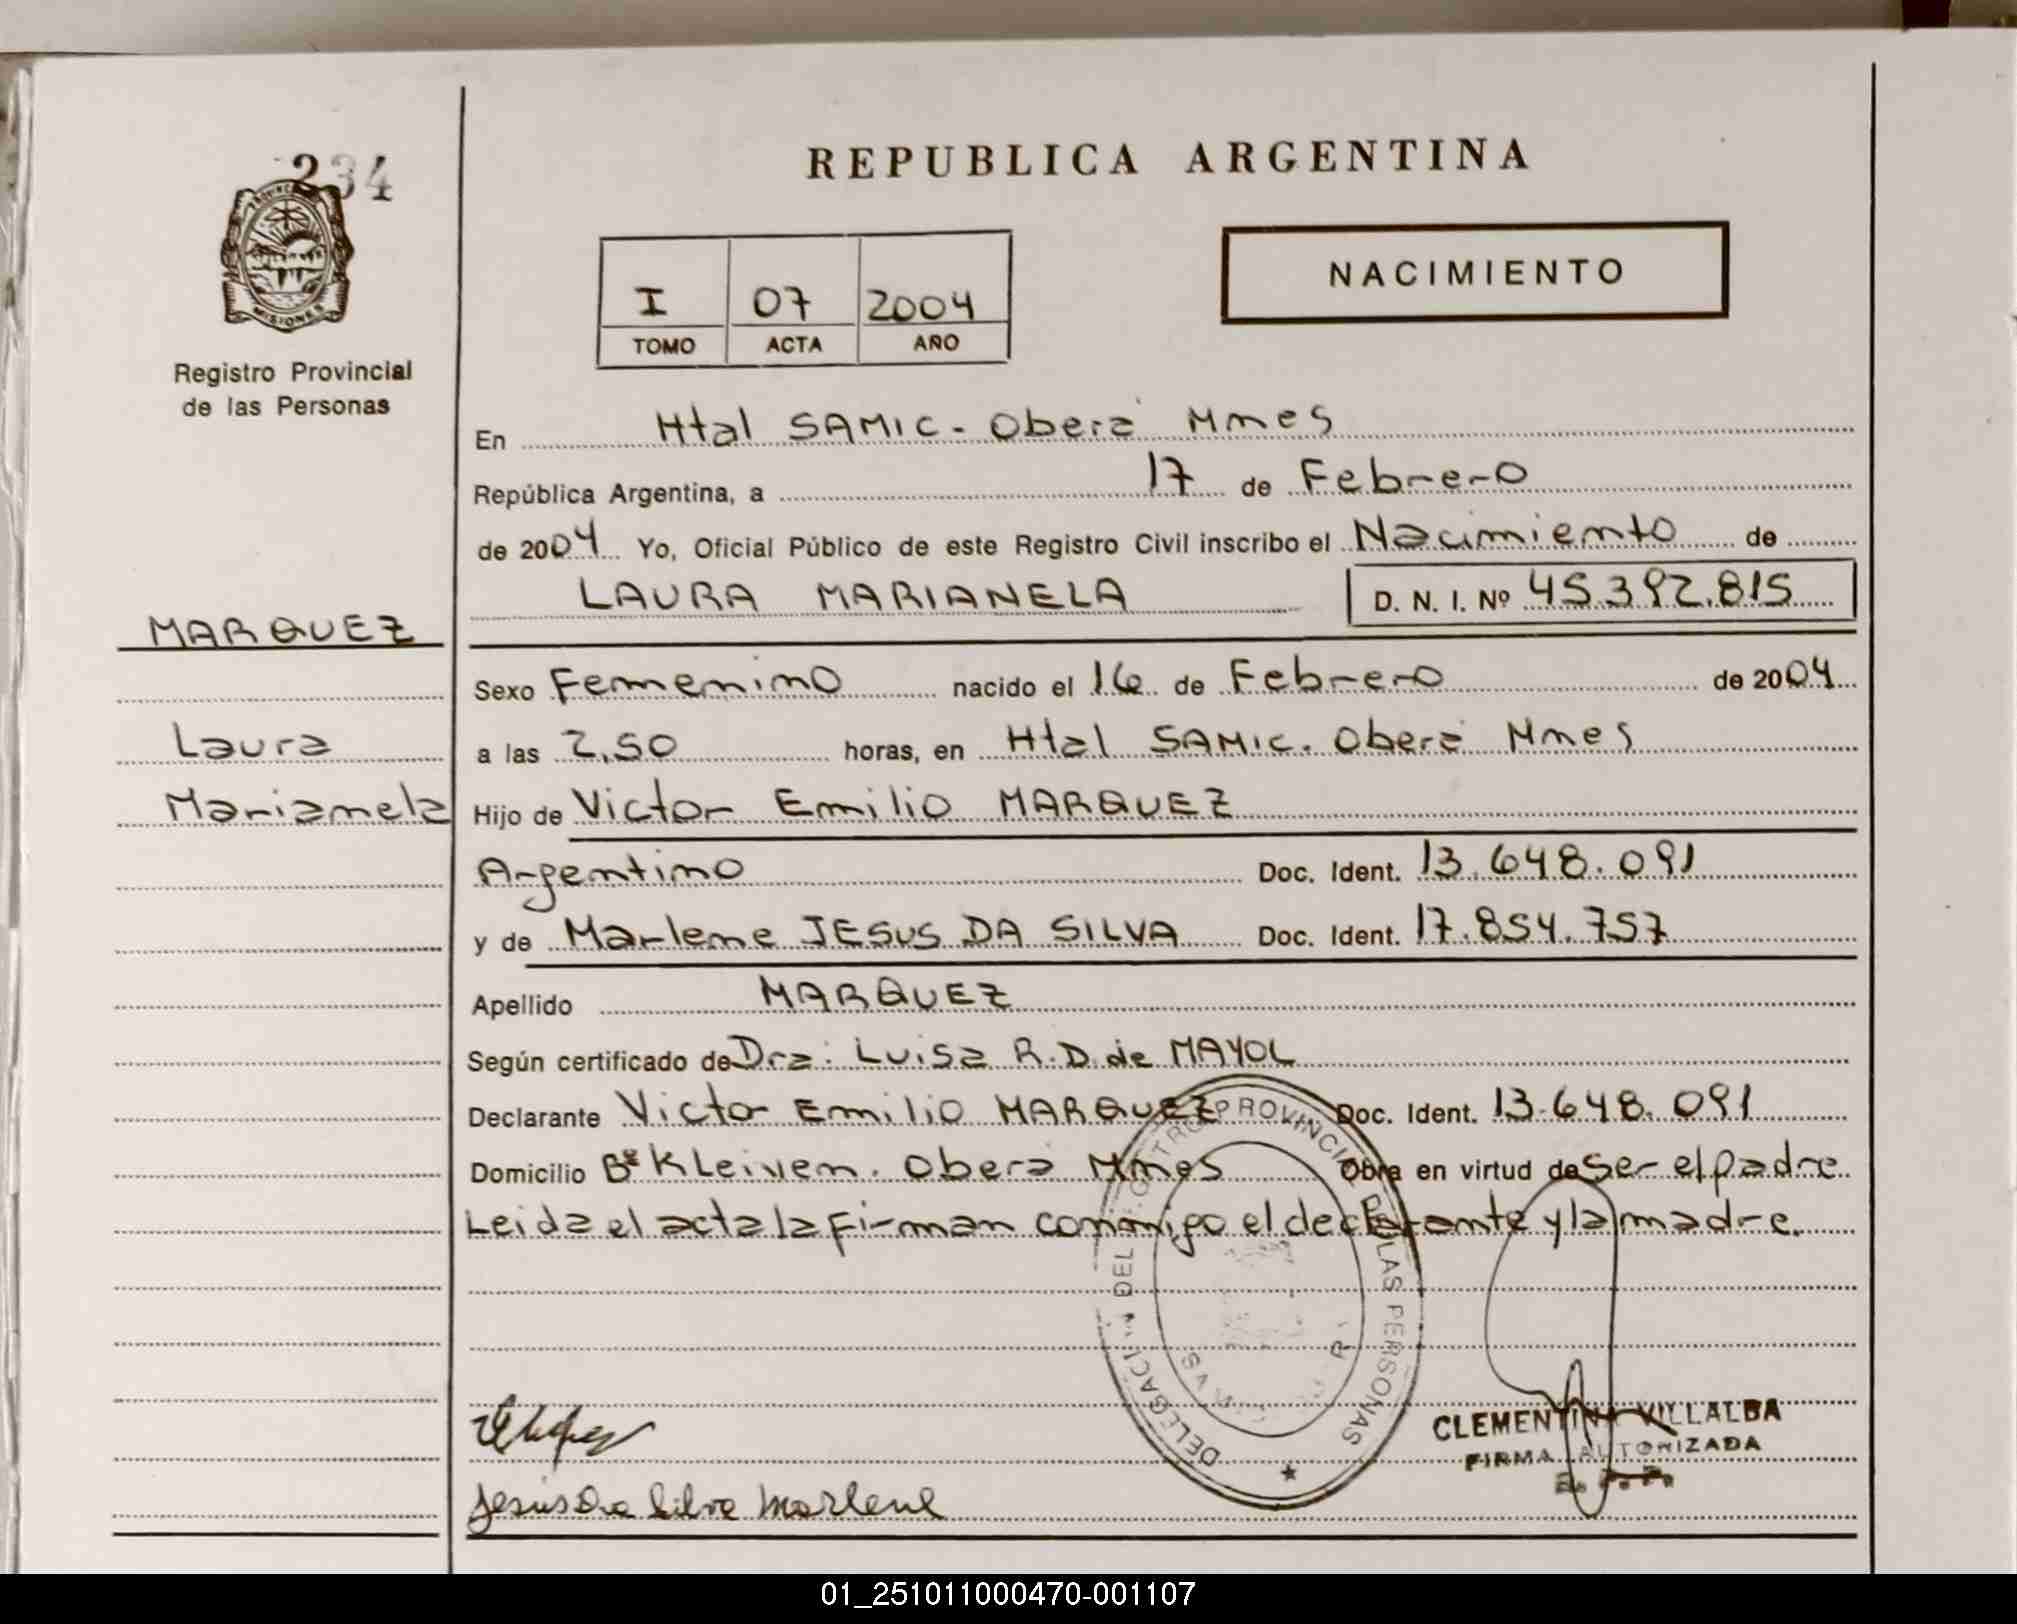 234
REPUBLICA ARGENTINA
NACIMIENTO
I 07 2004
TOMO ACTA AÑO
MISIONES
Registro Provincial
de las Personas
En Htal SAMIC - Oberá Mnes
República Argentina, a 17 de Febrero
de 2004 Yo, Oficial Público de este Registro Civil inscribo el Nacimiento de
LAURA MARIANELA D. N. I. Nº 45.392.815
MARQUEZ
Laura
Marianela
Sexo Femenino nacido el 16 de Febrero de 2004
a las 2,50 horas, en Htal SAMIC. Oberá Mnes
Hijo de Victor Emilio MARQUEZ
Argentino Doc. Ident. 13.648.091
y de Marlene JESUS DA SILVA Doc. Ident. 17.854.757
Apellido MARQUEZ
Según certificado de Dra: Luisa R.D. de MAYOL
Declarante Victor Emilio MARQUEZ Doc. Ident. 13.648.091
Domicilio Bº Kleiven. Obera Mnes Obra en virtud de ser el padre
Leida el acta la firman conmigo el declarante y la madre.
DELEGACION DEL REGISTRO PROVINCIAL DE LAS PERSONAS
CLEMENTINA VILLALBA
FIRMA AUTORIZADA
Jesus Da Silva Marlene
01_251011000470-001107